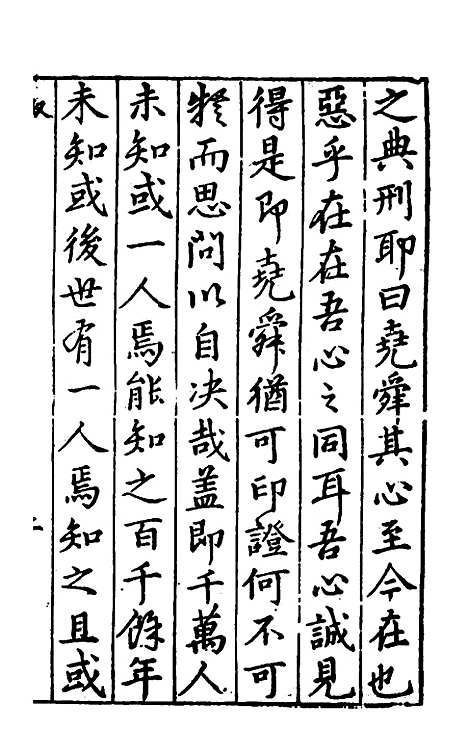 之典刑耶曰堯舜其心至今在也
惡乎在在吾心之同耳吾心誠見
得是即堯舜猶可印證何不可
而思問以自决哉盖即千萬人
未知或一人焉能知之百千餘年
未知或後世有一人焉知之且或